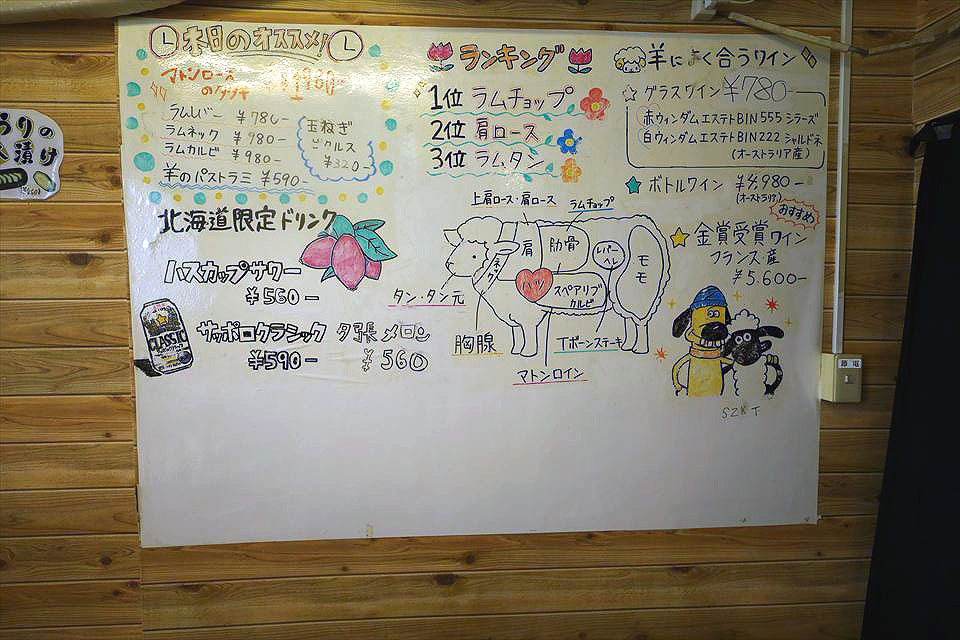 本日のオススメ!
マトンロース
¥1980-
ラムレバー ¥780-
ラムネック ¥980-
ラムカルビ ¥980-
羊のパストラミ ¥590-
玉ねぎ
ピクルス
¥320-
北海道限定ドリンク
ハスカップサワー
¥560-
CLASSIC
サッポロクラシック
¥590-
夕張メロン
¥560
ランキング
1位 ラムチョップ
2位 肩ロース
3位 ラムタン
上肩ロース・肩ロース
ラムチョップ
肩
肋骨
レバー
ヘレ
モモ
ネック
ハツ
スペアリブ
カルビ
タン・タン元
胸腺
Tボーンステーキ
マトンロイン
羊によく合うワイン
グラスワイン ¥780-
赤ウィンダムエステトBIN555 シラーズ
白ウィンダムエステトBIN222 シャルドネ
(オーストラリア産)
ボトルワイン ¥4,980-
おすすめ
金賞受賞ワイン
フランス・産
¥5.600-
SZKT
節電